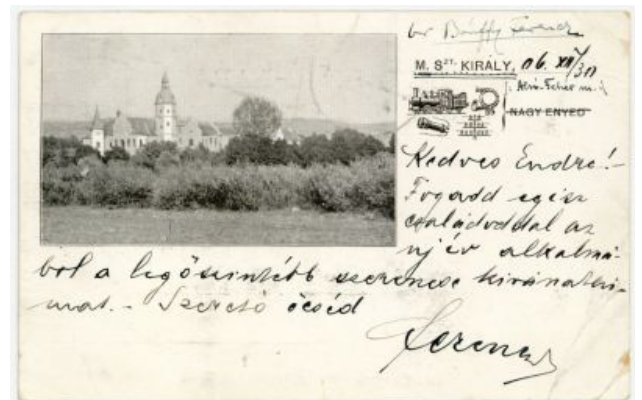 br Bánffy Ferencz
M. SZT. KIRÁLY, 06. XII/30
Alsó-Fehér m.
NAGY ENYED
Kedves Endre!-
Fogadd egész
családoddal az
új év alkalmá-
ból a legőszintébb szerencse kivánatai-
mat. - Szerető öcséd
Ferencz